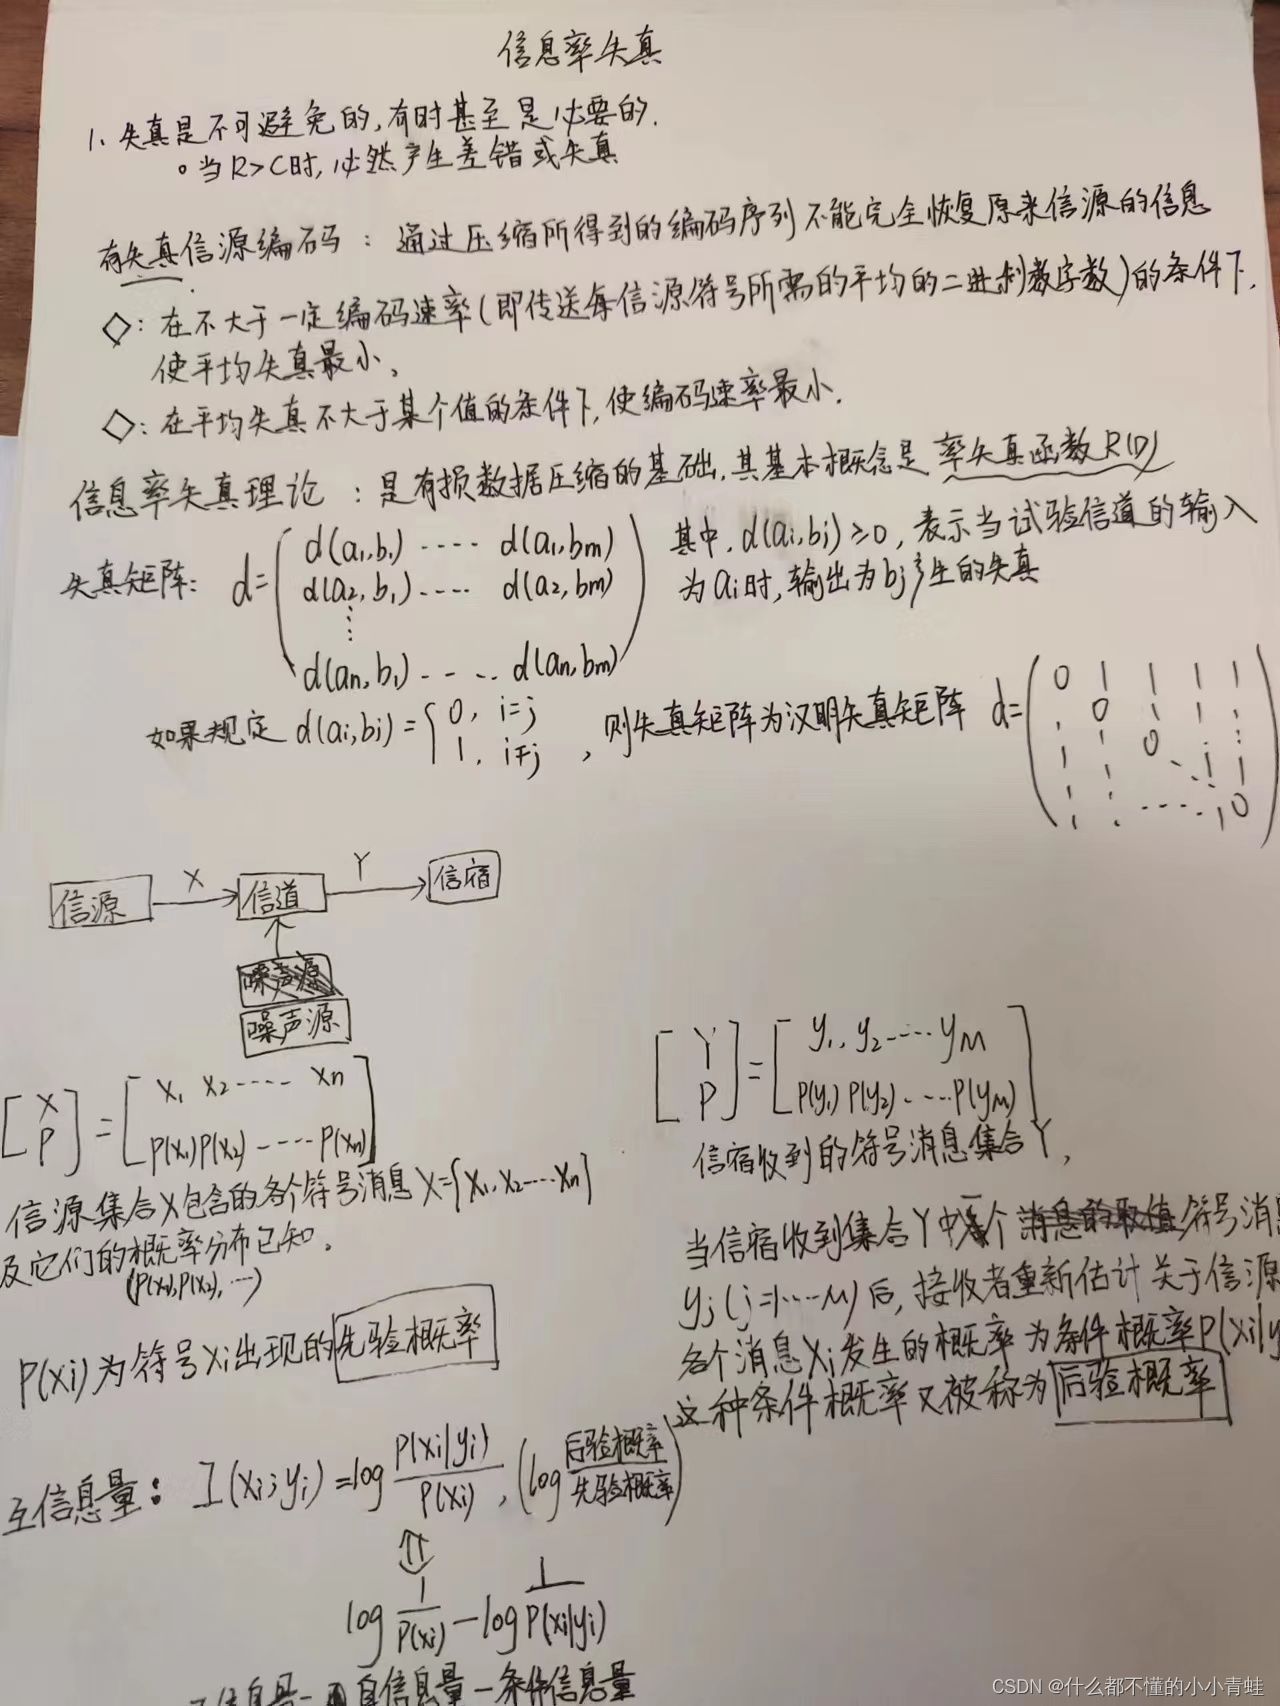 信息率失真
1、失真是不可避免的,有时甚至是必要的.
。当R>C时,必然产生差错或失真
有失真信源编码：通过压缩所得到的编码序列不能完全恢复原来信源的信息
◇：在不大于一定编码速率(即传送每信源符号所需的平均的二进制数字数)的条件下,
使平均失真最小、
◇：在平均失真不大于某个值的条件下,使编码速率最小.
信息率失真理论：是有损数据压缩的基础,其基本概念是率失真函数R(D)
失真矩阵： d=( d(a1,b1) ···· d(a1,bm)
d(a2,b1) ···· d(a2,bm)
⋮
d(an,b1) - - ·· d(an,bm) )
其中,d(ai,bj)≥0,表示当试验信道的输入
为ai时,输出为bj产生的失真
如果规定 d(ai,bj)={ 0, i=j
1, i≠j ,则失真矩阵为汉明失真矩阵 d=( 0 1 1 1 1
1 0 1 1 ⋮
1 1 0 · 1
⋮ ⋮ ··· 1 0 )
信源 X 信道 Y 信宿
噪声源
噪声源
[X P]=[ X1 X2 ···· Xn
P(X1)P(X2) ····P(Xn) ]
信源集合X包含的各个符号消息X={X1,X2····Xn}
及它们的概率分布已知。
(P(X1),P(X2),···)
P(Xi)为符号Xi出现的先验概率
[Y P]=[ y1, y2 ····yM
P(y1) P(y2)····P(yM) ]
信宿收到的符号消息集合Y,
当信宿收到集合Y中某个符号消息
yj(j=1····M)后,接收者重新估计关于信源
各个消息Xi发生的概率为条件概率P(Xi|y
这种条件概率又被称为后验概率
互信息量： I(xi;yj)=log P(xi|yj)/P(xi), (log 后验概率/先验概率)
⇕
log 1/P(xi) - log 1/P(xi|yj)
自信息量－条件信息量
CSDN @什么都不懂的小小青蛙